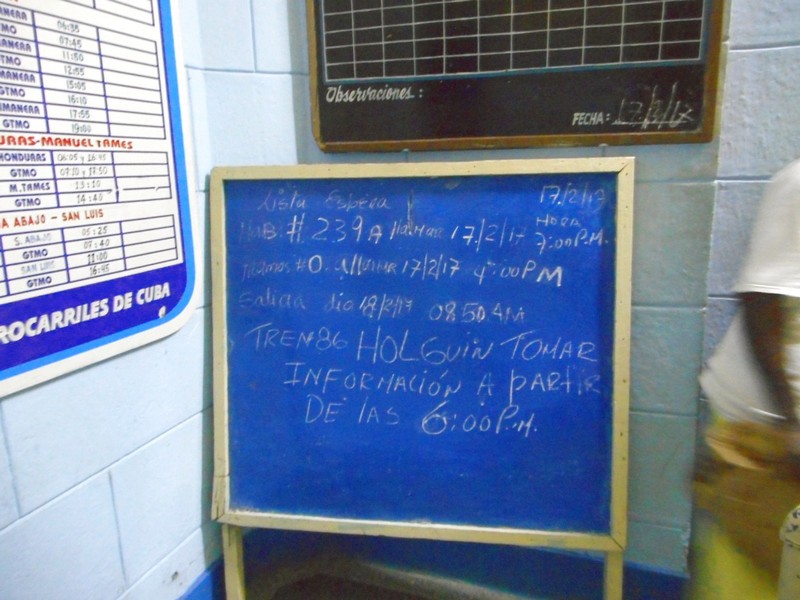 MANERA 06:35
GTMO 07:45
MANERA 11:50
GTMO 12:55
MANERA 15:05
GTMO 16:10
IMANERA 17:55
GTMO 19:00
URAS-MANUEL TAMES
HONDURAS 06:05 y 16:45
GTMO 07:10 y 17:50
M.TAMES 13:10
GTMO 14:40
A ABAJO - SAN LUIS
S. ABAJO 05:25
GTMO 07:40
SAN LUIS 11:00
GTMO 16:45
ROCARRILES DE CUBA
Observaciones:
FECHA: 17/2/17
Lista Espera 17/2/17
HaB. # 239 A llamar 17/2/17 Hora 7:00 P.M.
#0. 17/2/17 4:00 PM
Salida dia 18/2/17 08:50 AM
TREN 86 HOLGUIN TOMAR
INFORMACIÓN A PARTIR
DE LAS 6:00 P.M.